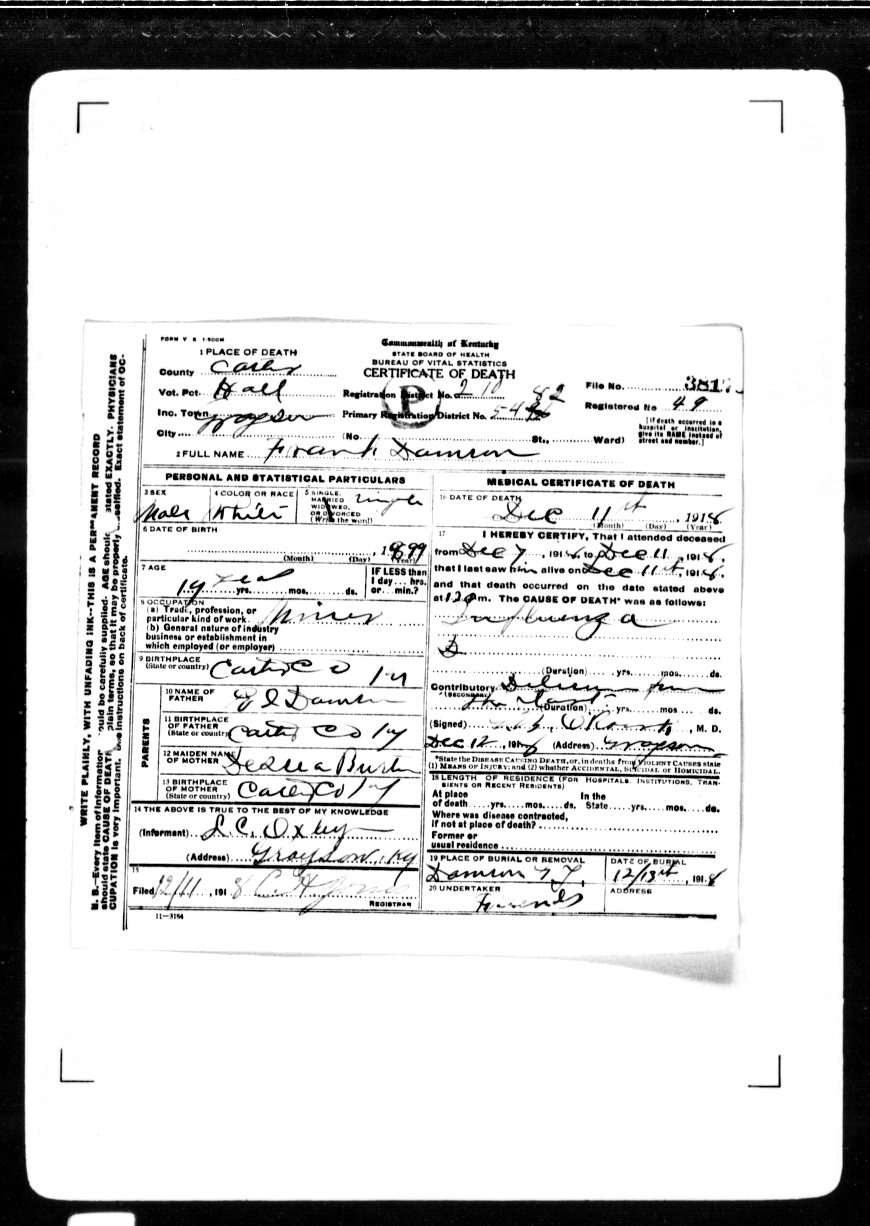 FORM V S 1-500M
Commonwealth of Kentucky
STATE BOARD OF HEALTH
BUREAU OF VITAL STATISTICS
CERTIFICATE OF DEATH
1 PLACE OF DEATH
County Carter
Vot. Pct. Hall
Inc. Town Grayson
City
(No. St., Ward)
Registration District No. 210
Primary Registration District No. 54
82
P
File No. 381
Registered No 49
[If death occurred in a
hospital or institution,
give its NAME instead of
street and number.]
2 FULL NAME Frank Damron
PERSONAL AND STATISTICAL PARTICULARS
3 SEX
Male
4 COLOR OR RACE
White
5 SINGLE,
MARRIED
WIDOWED,
OR DIVORCED
(Write the word)
single
6 DATE OF BIRTH
, 1899
(Month) (Day) (Year)
7 AGE
19 years
yrs. mos. ds.
IF LESS than
1 day... hrs.
or... min.?
8 OCCUPATION
(a) Trade, profession, or
particular kind of work Miner
(b) General nature of industry
business or establishment in
which employed (or employer)
9 BIRTHPLACE
(State or country) Carter Co Ky
PARENTS
10 NAME OF
FATHER Damron
11 BIRTHPLACE
OF FATHER
(State or country) Carter Co Ky
12 MAIDEN NAME
OF MOTHER
13 BIRTHPLACE
OF MOTHER
(State or country) Carter Co Ky
14 THE ABOVE IS TRUE TO THE BEST OF MY KNOWLEDGE
(Informant) L.C. Oxley
(Address) Grayson, Ky
15
Filed 12/11, 1918
REGISTRAR
11—3184
MEDICAL CERTIFICATE OF DEATH
16 DATE OF DEATH
Dec 11st, 1918
(Month) (Day) (Year)
17
I HEREBY CERTIFY, That I attended deceased
from Dec 7, 1918, to Dec 11, 1918,
that I last saw him alive on Dec 11st, 1918,
and that death occurred on the date stated above
at m. The CAUSE OF DEATH* was as follows:
Influenza
(Duration) yrs. mos. ds.
Contributory
(SECONDARY)
(Duration) yrs. mos. ds.
(Signed) , M. D.
Dec 12, 191 (Address) Grayson
*State the DISEASE CAUSING DEATH, or, in deaths from VIOLENT CAUSES state
(1) MEANS OF INJURY; and (2) whether ACCIDENTAL, SUICIDAL or HOMICIDAL.
18 LENGTH OF RESIDENCE (FOR HOSPITALS, INSTITUTIONS, TRAN-
SIENTS OR RECENT RESIDENTS)
At place In the
of death yrs. mos. ds. State yrs. mos. ds.
Where was disease contracted,
if not at place of death?
Former or
usual residence
19 PLACE OF BURIAL OR REMOVAL
Damron
DATE OF BURIAL
12/13st, 1918
20 UNDERTAKER
Friends
ADDRESS
WRITE PLAINLY, WITH UNFADING INK--THIS IS A PERMANENT RECORD
N. B.—Every item of information should be carefully supplied. AGE should stated EXACTLY. PHYSICIANS
should state CAUSE OF DEATH plain terms, so that it may be properly classified. Exact statement of OC-
CUPATION is very important. See instructions on back of certificate.